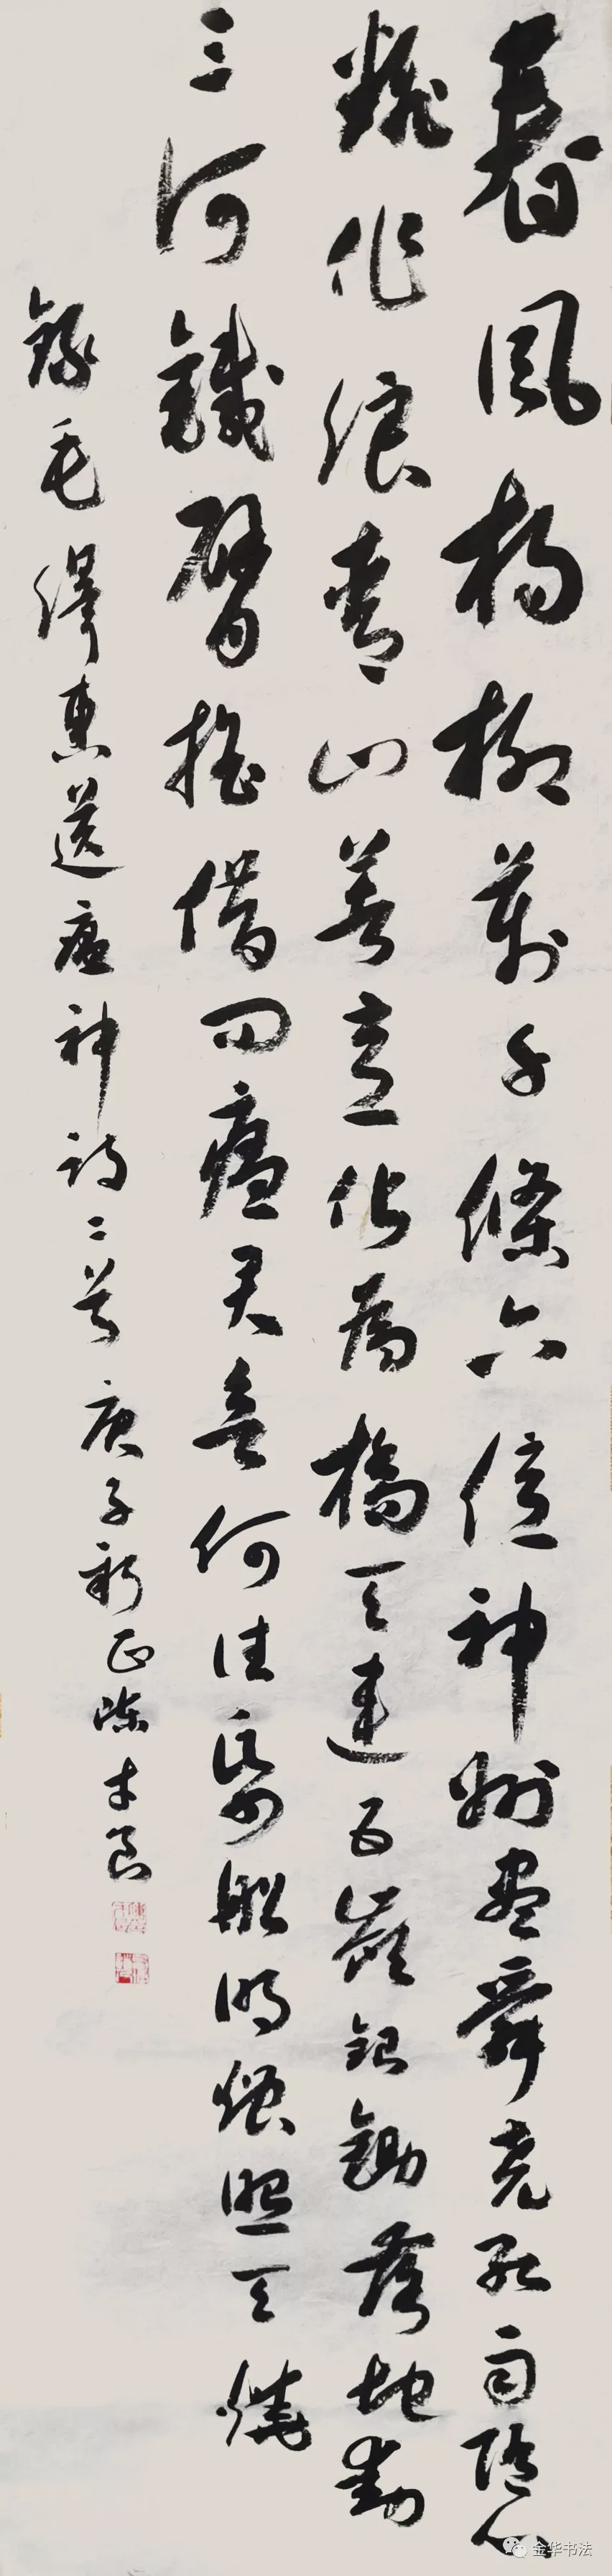 春風楊柳萬千條六億神州盡舜堯紅雨隨心
翻作浪青山着意化為橋天連五嶺銀鋤落地動
三河鐵臂搖借問瘟君欲何往紙船明燭照天燒
錄毛澤東送瘟神詩二首庚子新正陳
金华书法